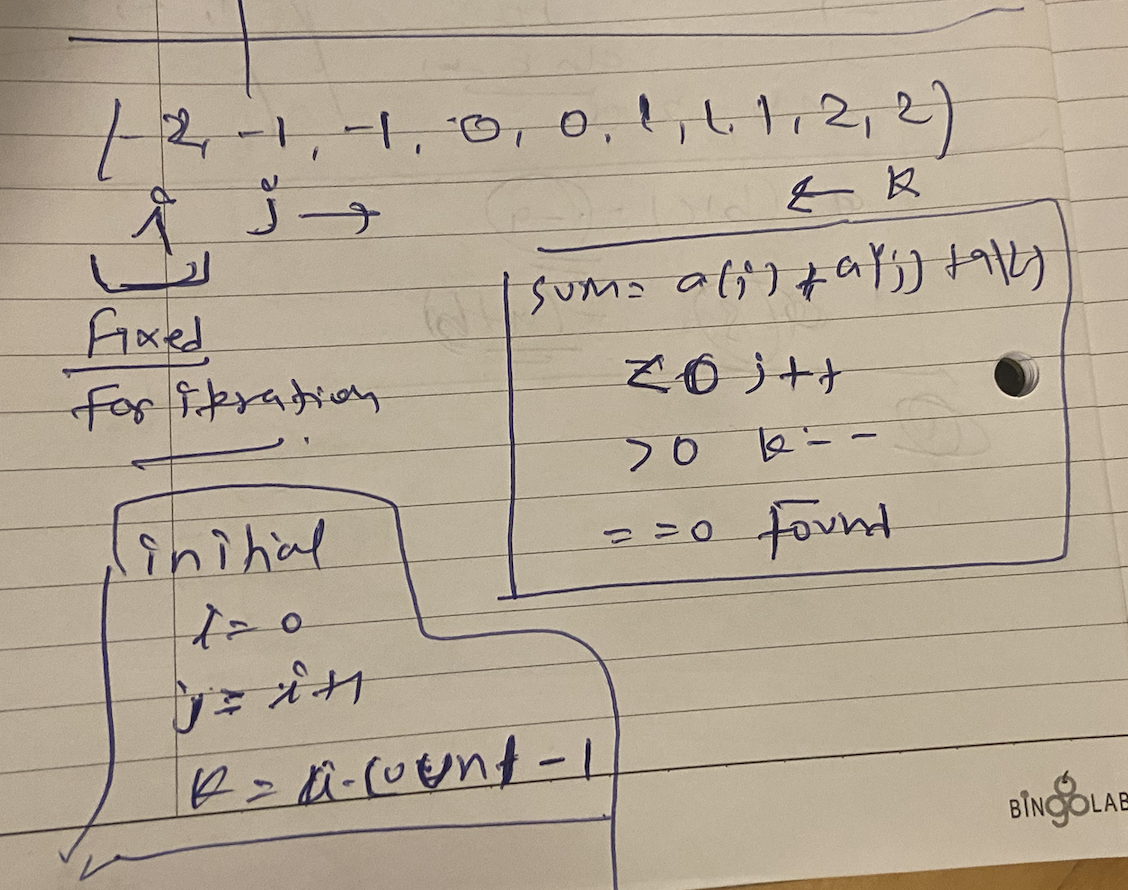 (-2, -1, -1, 0, 0, 1, 1, 1, 2, 2)
i j → ← k
Fixed
For itration
sum= a(i) + a(j) + a(k)
<0 j++
>0 k--
==0 Found
initial
i=0
j= i+1
k= a.count-1
BINGOLAB